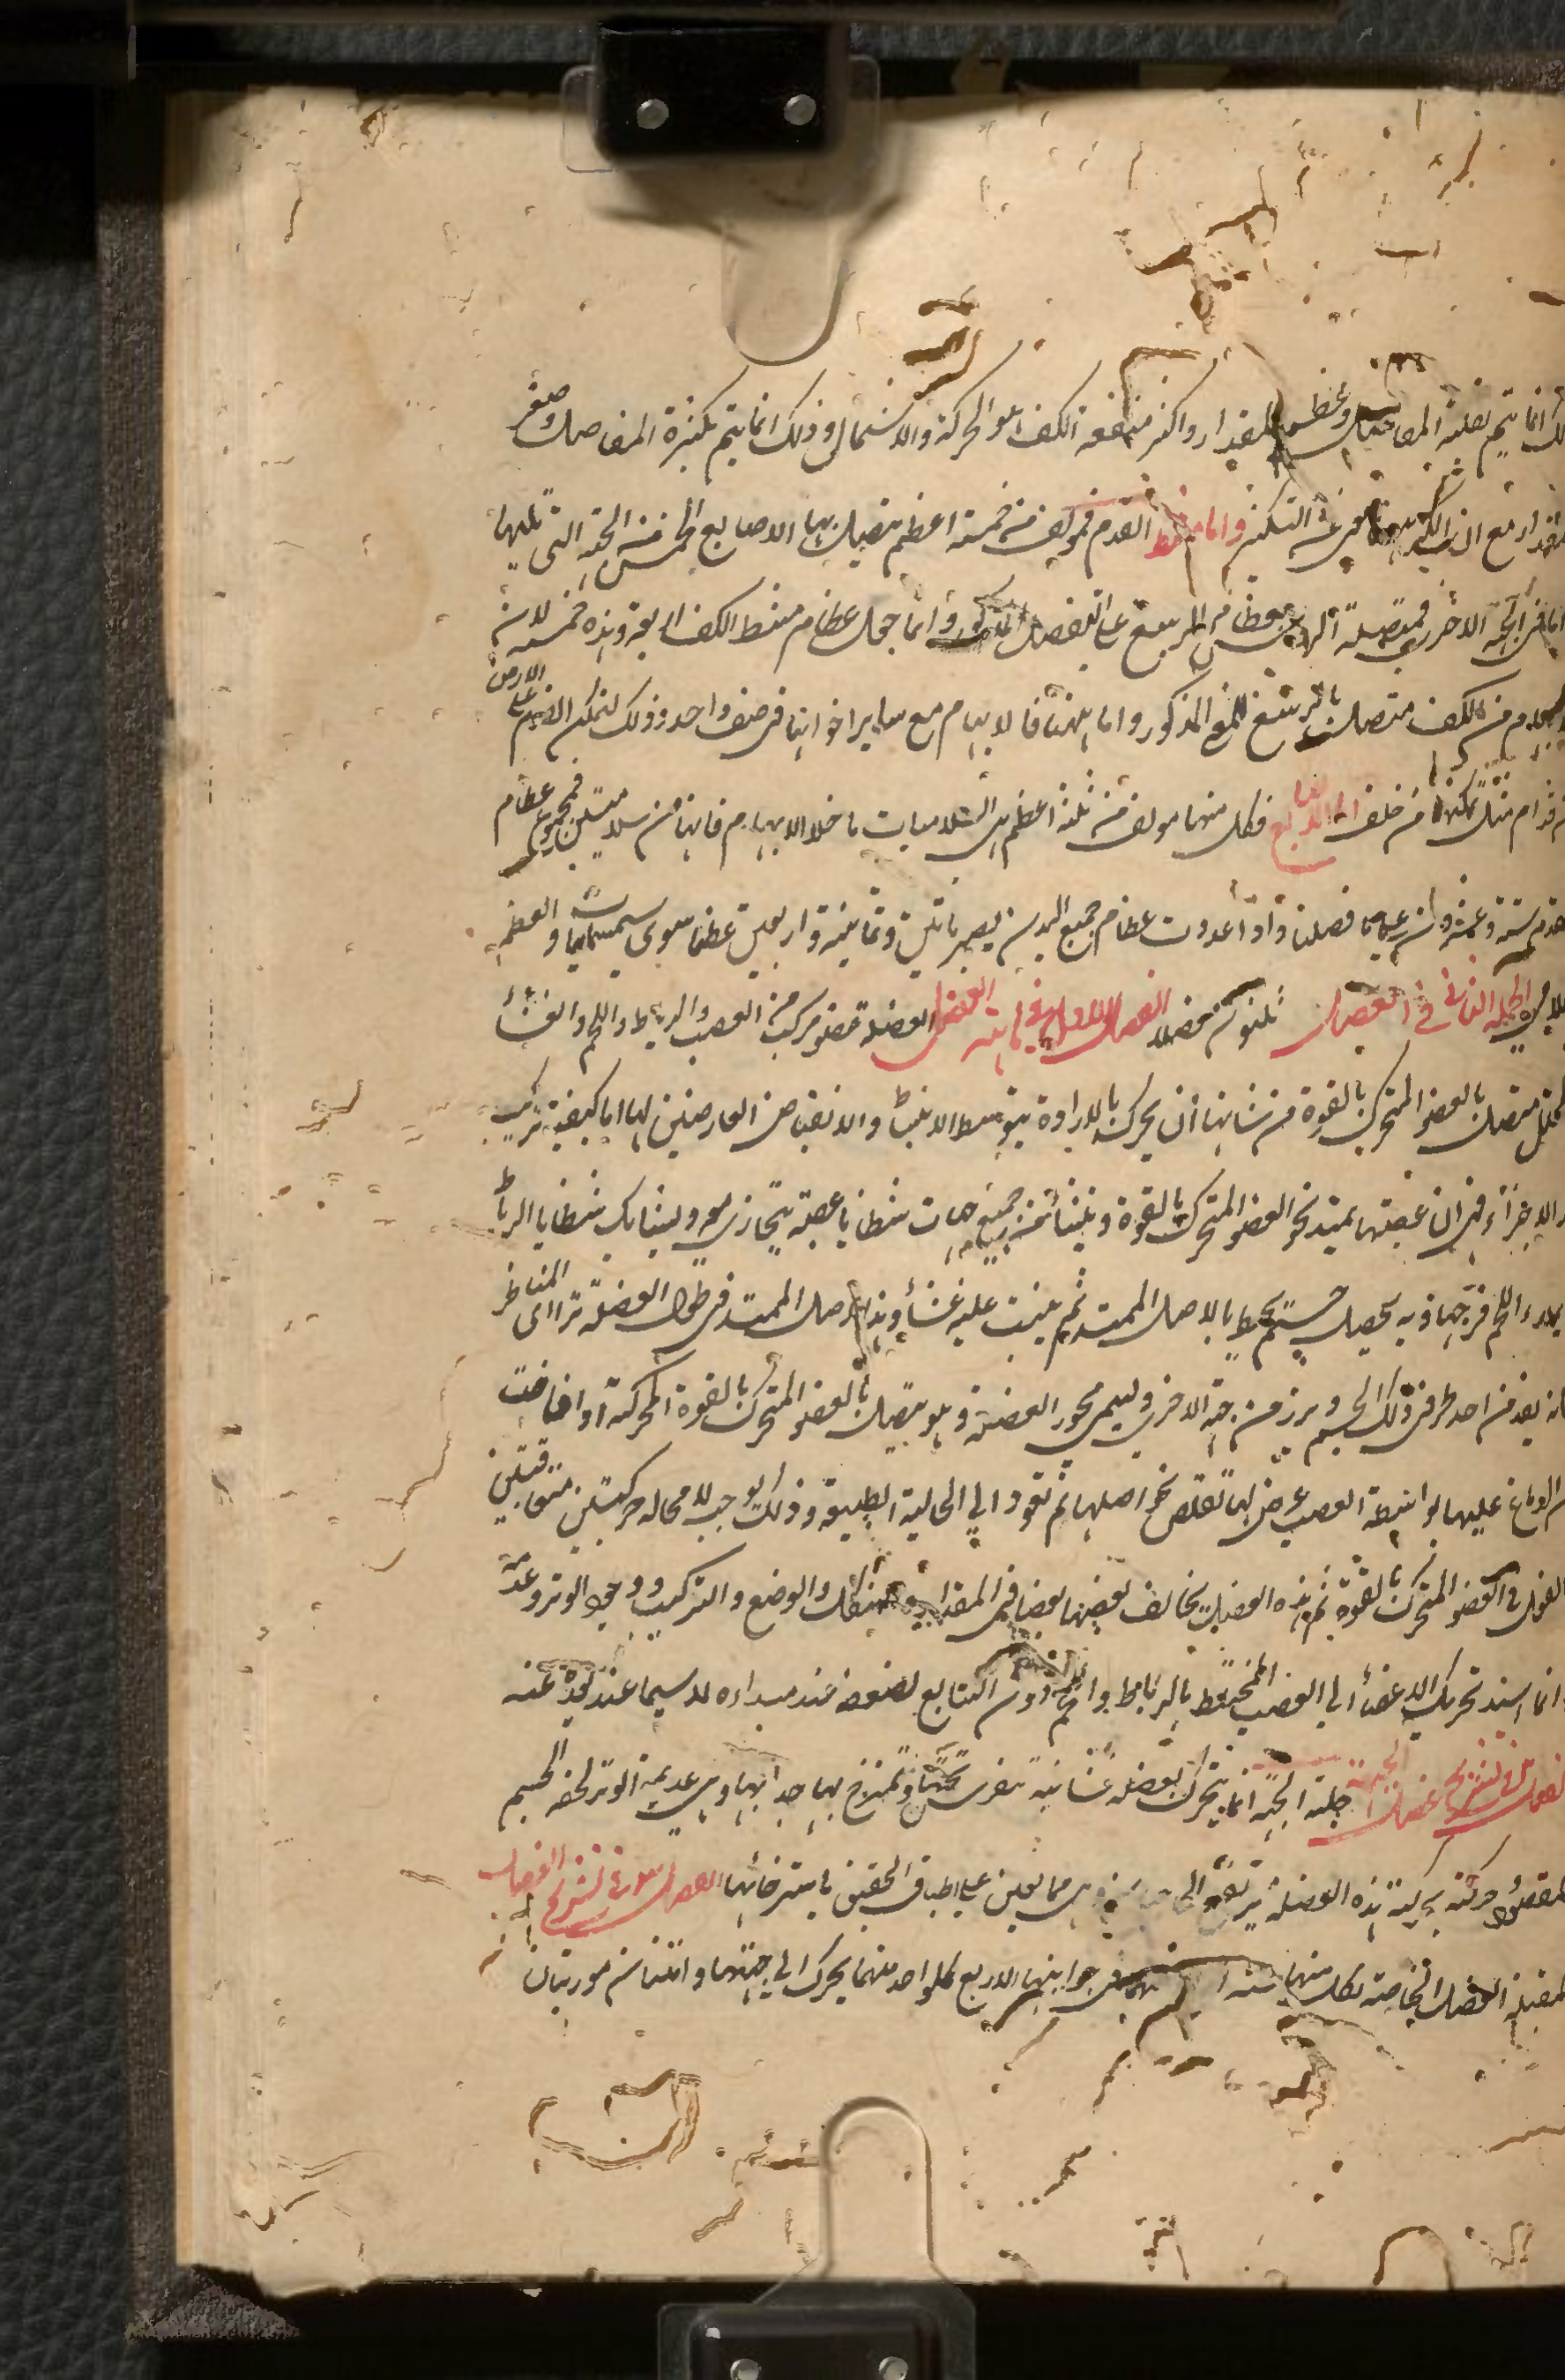 انما يتم بقلة المفاصل وعظم المقدار واكثر منفعة الكف هو الحركة والاشتمال وذلك انما يتم بكثرة المفاصل وصغر
المقدار مع ان التكثير التكثير واما مشط القدم فمؤلف من خمسة اعظم يتصل بها الاصابع الخمس من الجهة التى تليها
اما فى الجهة الاخرى فمتصلة بعظام الرسغ على التفصيل المذكور وانما جعل عظام مشط الكف اربعة وهذه خمسة لان
الابهام من الكف متصل بالرسغ للنفع المذكور واما ههنا فالابهام مع ساير اخواتها فى صف واحد وذلك لتمكن القدم على الارض
من قدام مثل تمكنها من خلف اما الاصابع فكل منها مؤلف من ثلثة اعظم هى السلاميات ما خلا الابهام فانها من سلاميتين فمجموع عظام
القدم ستة وعشرون على ما فصلنا واذا عددت عظام جميع البدن يصير مأتين وثمانية واربعين عظما سوى السمسمانيات والعظم
اللامى الجملة الثانى فى العضل ثلثون فصلا الفصل الاول فى ماهية العضل العضلة عضو مركب من العصب والرباط واللحم والغشاء
المجلل متصل بالعضو المتحرك بالقوة من شانها ان يحرك بالارادة بتوسط الانبساط والانقباض العارضين لها اما كيفية تركيب
الاجزاء فهى ان عصبتها يمتد نحو العضو المتحرك بالقوة وينشأ من جميع جهات شظايا عصبة يتحازى هو ويشابك شظايا الرباط
يملاء اللحم فرجها وبه يحصل جسم يحيط بالاصل الممتد ثم ينبت عليه غشاء وهذا الاصل الممتد فى طول العضلة تراءى المناظر
انه يغذ من احد طرفى ذلك الجسم وبرز من جهة الاخرى ويسمى محور العضلة وهو يتصل بالعضو المتحرك بالقوة المحركة اذا افاضت
من الدماغ عليها بواسطة العصب عرض لها تقلص نحو اصلها ثم تعود الى الحالة الطبيعة وذلك يوجب لا محالة حركتين متعاقبتين
بالفعل فى العضو المتحرك بالقوة ثم هذه العضل يخالف بعضها بعضا فى المقدار والشكل والوضع والتركيب ووجود الوتر وعدمه
انما اسند تحريك الاعضاء الى العصب المختلط بالرباط واللحم دون التابع لضعفه عند مبداءه لا سيما عند بعده عنه
الفصل فى تشريح عضل الجبهة جلدة الجبهة انما يتحرك بعضلة غشائية تفرش تحتها وتمتزج بها جدا بها وهى عديمة الوتر لخفة الجسم
المقصود حركته بحركة هذه العضلة يرتفع الحاجب وهى مما يعين على اطباق الجفن باسترخائها الفصل فى تشريح العضل
المقلة العضل الخاصة لكل منها ستة اربع منها فى جوانبها الاربع كل واحد منها يحرك الى جهتها واثنتان موربتان